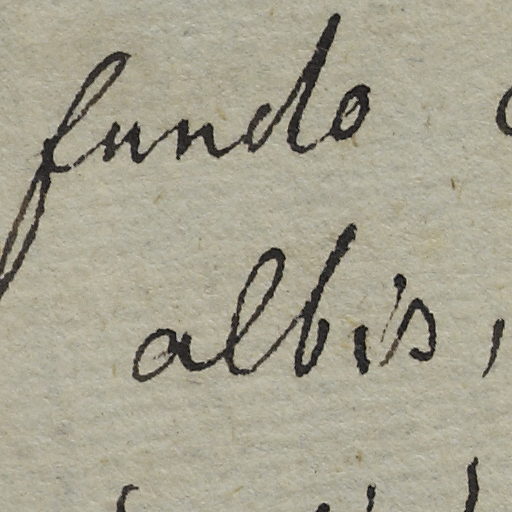 fundo
albis,